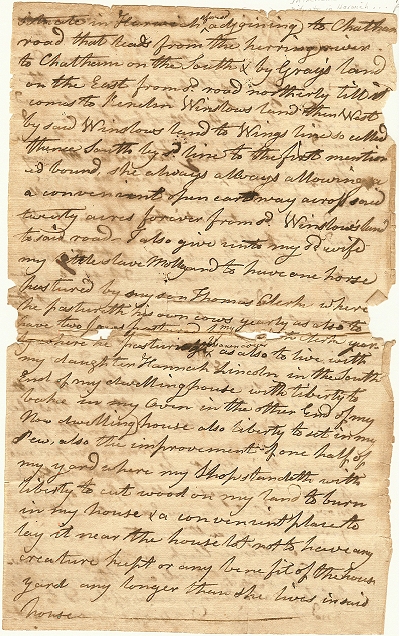 situate in Harwich aforesd adjoining to Chatham
road that leads from the herring river
to Chatham on the South & by Gray's land
on the East from sd. road northerly till it
comes to Kenelm Winslows land then West
by said Winslows land to Wings line so called
thence South by sd. line to the first mention
ed bound, she always allways allowing
a convenient open cart way across said
twenty acres forever from sd. Winslow's land
to said road. I also give unto my sd wife
my slave Molly and to have one horse
pastured by my son Thomas Clark where
he pastureth his own cows yearly as also to
have two cows pastured
pasture as also to live with
my daughter Hannah Lincoln in the South
End of my dwelling house with liberty to
bake in my Oven in the other End of my
Now dwelling house also liberty to set in my
Pew. also the improvement of one half of
my yard where my Shop standeth with
liberty to cut wood on my land to burn
in my house & a convenient place to
lay it near the house but not to have any
creature kept or any benefit of the house
yard any longer than she lives in said
house